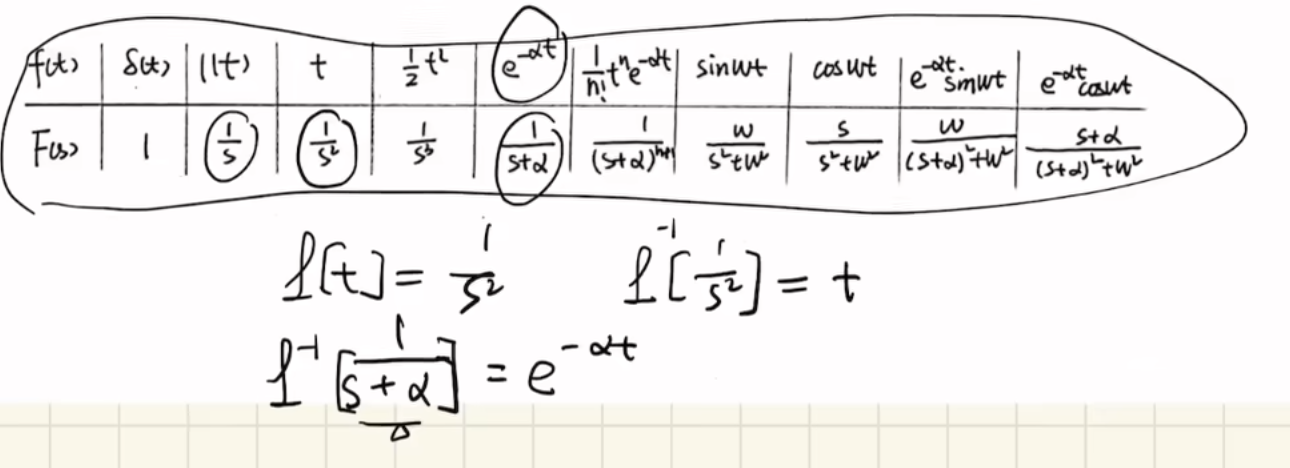 f(t) | δ(t) | 1(t) | t | \frac{1}{2}t² | e^{-αt} | \frac{1}{n!}t^n e^{-αt} | sinωt | cosωt | e^{-αt}·sinωt | e^{-αt}cosωt
F(s) | 1 | \frac{1}{s} | \frac{1}{s²} | \frac{1}{s³} | \frac{1}{s+α} | \frac{1}{(s+α)^{n+1}} | \frac{ω}{s²+ω²} | \frac{s}{s²+ω²} | \frac{ω}{(s+α)²+ω²} | \frac{s+α}{(s+α)²+ω²}
ℒ[t] = \frac{1}{s²} ℒ^{-1}[\frac{1}{s²}] = t
ℒ^{-1}[\frac{1}{s+α}] = e^{-αt}